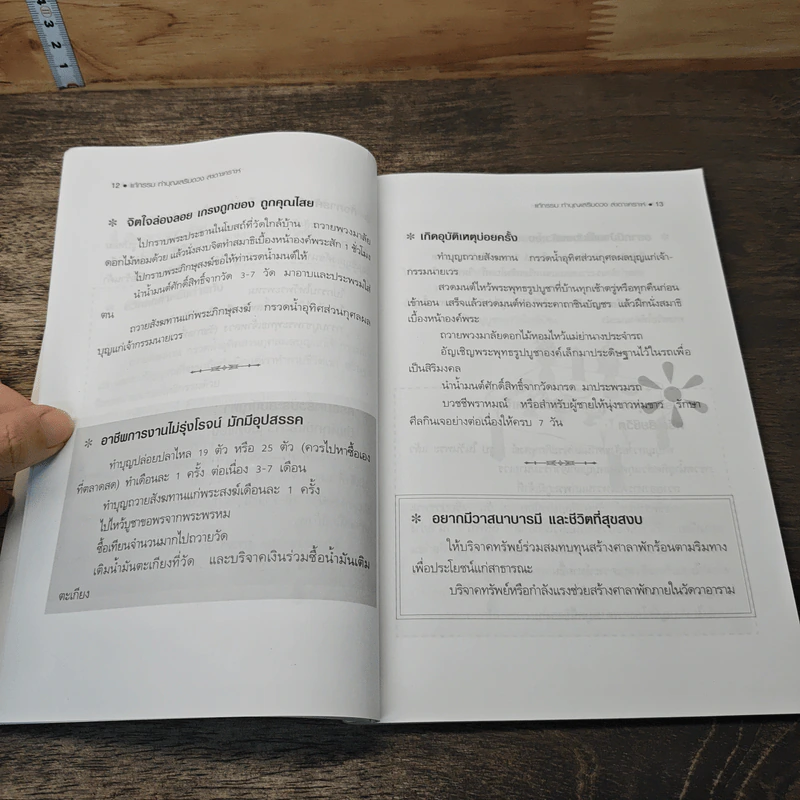 3
2
1
12 • แก้กรรม ทำบุญเสริมดวง สะเดาะเคราะห์
* จิตใจล่องลอย เกรงถูกของ ถูกคุณไสย
ไปกราบพระประธานในโบสถ์ที่วัดใกล้บ้าน ถวายพวงมาลัย
ดอกไม้หอมด้วย แล้วนั่งสงบจิตทำสมาธิเบื้องหน้าองค์พระสัก 1 ชั่วโมง
ไปกราบพระภิกษุสงฆ์ขอให้ท่านรดน้ำมนต์ให้
นำน้ำมนต์ศักดิ์สิทธิ์จาก 3-7 วัด มาอาบและประพรมใส่
ตน
ถวายสังฆทานแก่พระภิกษุสงฆ์ กรวดน้ำอุทิศส่วนกุศลผล
บุญแก่เจ้ากรรมนายเวร
* อาชีพการงานไม่รุ่งโรจน์ มักมีอุปสรรค
ทำบุญปล่อยปลาไหล 19 ตัว หรือ 25 ตัว (ควรไปหาซื้อเอง
ที่ตลาดสด) ทำเดือนละ 1 ครั้ง ต่อเนื่อง 3-7 เดือน
ทำบุญถวายสังฆทานแก่พระสงฆ์เดือนละ 1 ครั้ง
ไปไหว้บูชาขอพรจากพระพรหม
ซื้อเทียนจำนวนมากไปถวายวัด
เติมน้ำมันตะเกียงที่วัด และบริจาคเงินร่วมซื้อน้ำมันเติม
ตะเกียง
แก้กรรม ทำบุญเสริมดวง สะเดาะเคราะห์ • 13
* เกิดอุบัติเหตุบ่อยครั้ง
ทำบุญถวายสังฆทาน กรวดน้ำอุทิศส่วนกุศลผลบุญแก่เจ้า-
กรรมนายเวร
สวดมนต์ไหว้พระพุทธรูปบูชาที่บ้านทุกเช้าตรู่หรือทุกคืนก่อน
เข้านอน เสร็จแล้วสวดมนต์ท่องพระคาถาชินบัญชร แล้วฝึกนั่งสมาธิ
เบื้องหน้าองค์พระ
ถวายพวงมาลัยดอกไม้หอมไหว้แม่ย่านางประจำรถ
อัญเชิญพระพุทธรูปบูชาองค์เล็กมาประดิษฐานไว้ในรถเพื่อ
เป็นสิริมงคล
นำน้ำมนต์ศักดิ์สิทธิ์จากวัดมารด มาประพรมรถ
บวชชีพราหมณ์ หรือสำหรับผู้ชายให้นุ่งขาวห่มขาว รักษา
ศีลกินเจอย่างต่อเนื่องให้ครบ 7 วัน
* อยากมีวาสนาบารมี และชีวิตที่สุขสงบ
ให้บริจาคทรัพย์ร่วมสมทบทุนสร้างศาลาพักร้อนตามริมทาง
เพื่อประโยชน์แก่สาธารณะ
บริจาคทรัพย์หรือกำลังแรงช่วยสร้างศาลาพักภายในวัดวาอาราม